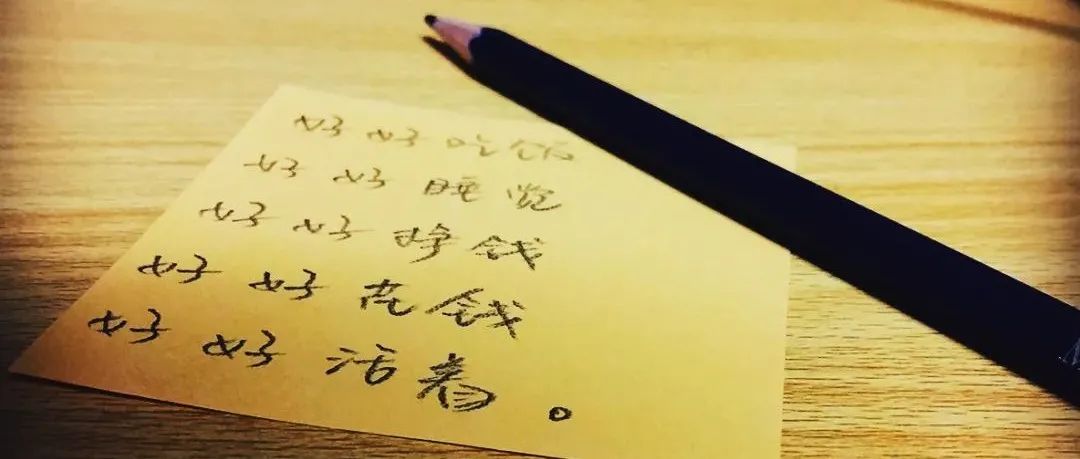 好好吃饭
好好睡觉
好好挣钱
好好花钱
好好活着。